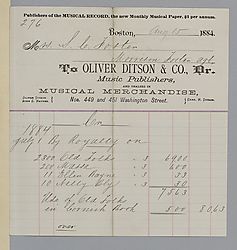 Publishers of the MUSICAL RECORD, the new Monthly Musical Paper, $1 per annum.
276
Boston, Aug 15 1884.
Mrs S. C. Foster
Morrison Foster agt
To OLIVER DITSON & CO., Dr.
Music Publishers,
AND DEALERS IN
MUSICAL MERCHANDISE,
Nos. 449 and 451 Washington Street.
OLIVER DITSON,
JOHN C. HAYNES.
CHAS. H. DITSON.
Cr
1884
July 1 By Royalty on
2300 Old Folks - 3 69 00
200 Massa - 3 6 00
11 Ellen Bayne - 3 33
10 Nelly Bly - 3 30
75 63
Use of Old Folks
in Cornish Book 5 00 80 63